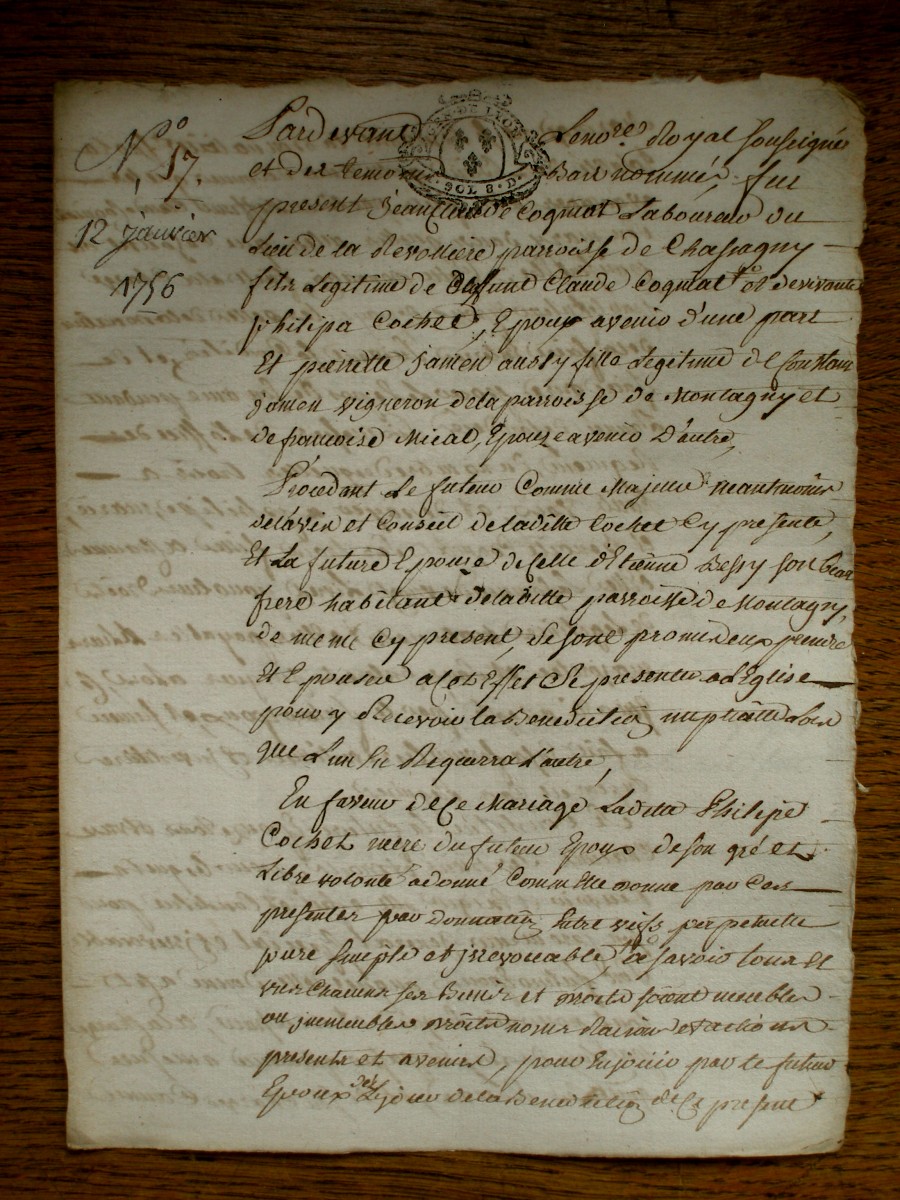 N.o 17.
12 janvier
1756
Pardevant Le no.re Royal soussigné
et des temoins Bas nommés, fut
present Jean Claude Cogniat Laboureur du
Lieu de la Revolliere parroisse de Chassagny
fils Legitime de deffunt Claude Cogniat et de vivante
philipa Cochet, Epoux avenir d'une part
Et pierrette jamen aussy fille Legitime de Constant
jamen vigneron dela parroisse de Montagny et
de francoise Micat, Epouze avenir D'autre,
Procedant Le futeur Comme Majeur neantmoins
delavis et Conseil deladitte Cochet Cy presente,
Et La future Epouze de Celle d'Etienne Bessy son Beau
frere habitant deladitte parroisse de Montagny,
de meme Cy present, se sont promis deux prendre
Et Epouser a Cet Effet se presenter a L'Eglise
pour y Recevoir la Benediction nuptialle Lors
que L'un En Requerra L'autre,
En faveur de Ce Mariage Laditte Philipe
Cochet mere du futeur Epoux de son gré et
Libre volonté a donné Comm'Elle donne par Ces
presentes par donnation Entre vifs perpetuelle
pure simple et jrrevocable, a savoir tous et
uns Chacuns ses Biens et droits soient meubles
ou jmmeubles droits noms Raisons et actions
presents et avenirs, pour En jouir par le futeur
Epoux des Le jour dela Benediction de Ce present
GEN DE LYON
SOL 8 D.